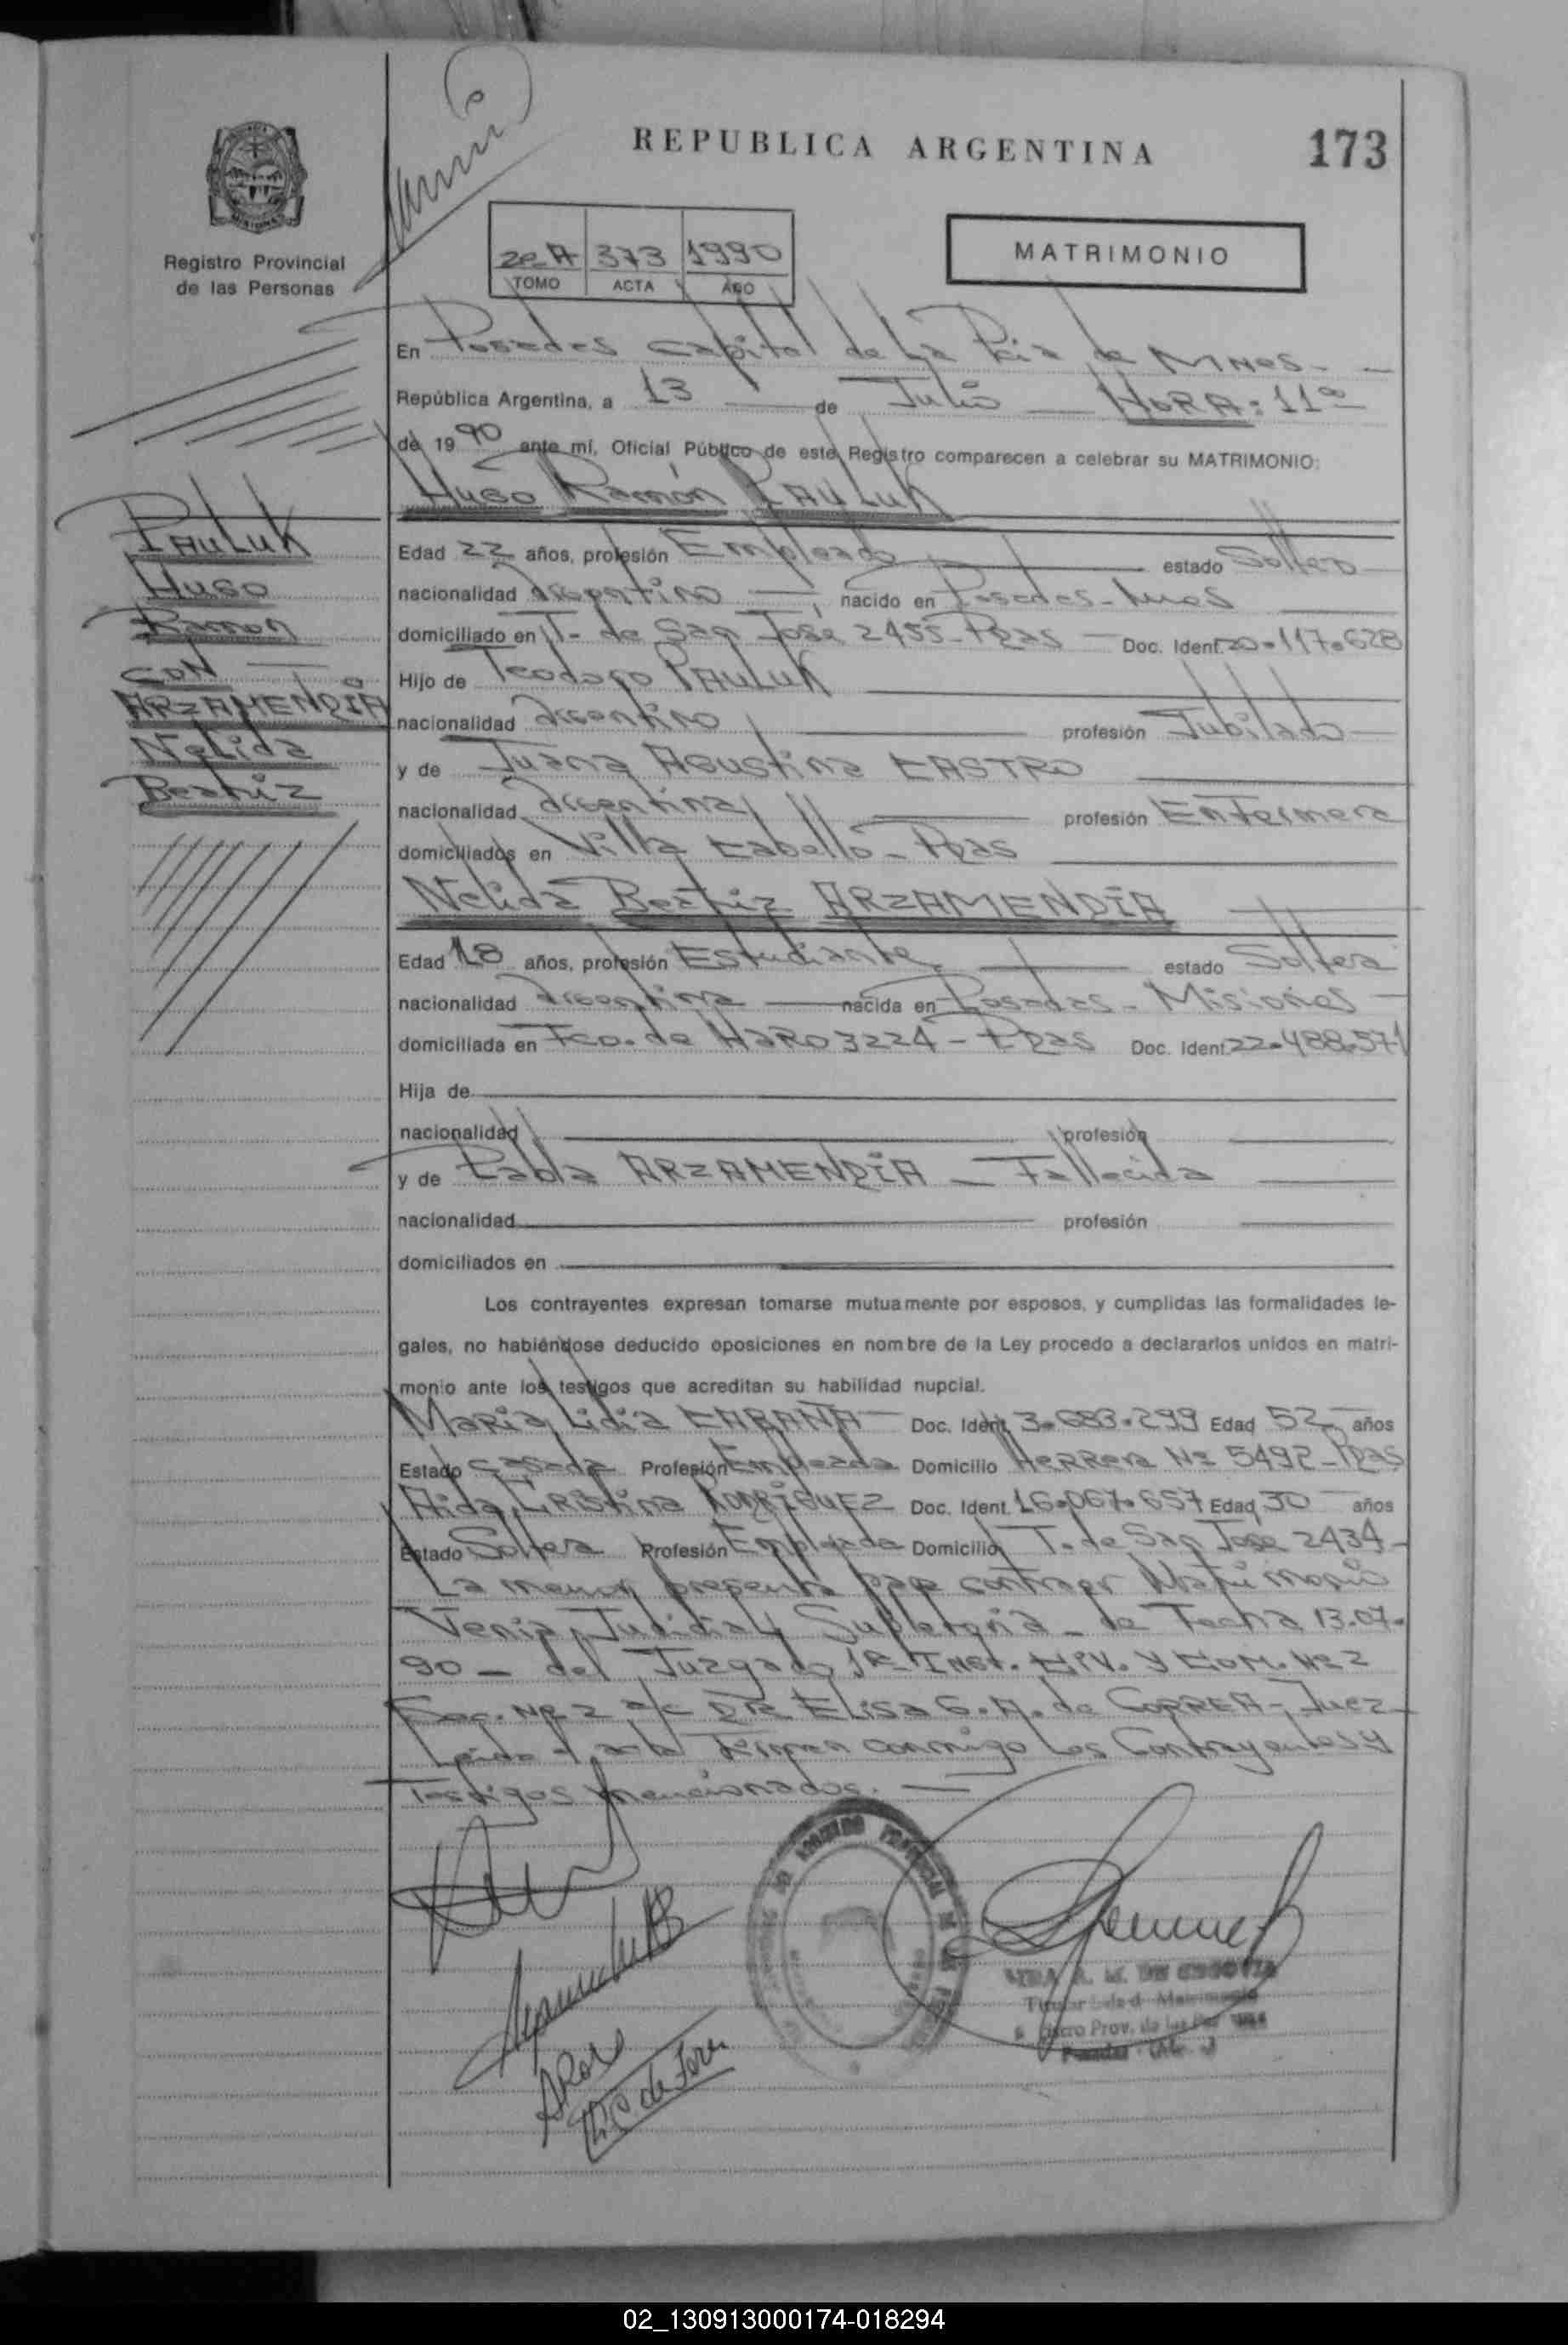 REPUBLICA ARGENTINA
173
Registro Provincial
de las Personas
2º A 373 1990
TOMO ACTA AÑO
MATRIMONIO
En Posadas Capital de La Pcia de Mnes.
República Argentina, a 13 de Julio HORA: 11º
de 1990 ante mí, Oficial Público de este Registro comparecen a celebrar su MATRIMONIO:
Hugo Ramón PAULUK
PAULUK
Hugo
Ramon
CON
ARZAMENDIA
Nelida
Beatriz
Edad 22 años, profesión Empleado estado Soltero
nacionalidad Argentino nacido en Posadas - Mnes
domiciliado en T. de San José 2455 - Pdas Doc. Ident. 20.117.628
Hijo de Teodoro PAULUK
nacionalidad Argentino profesión Jubilado
y de Juana Agustina CASTRO
nacionalidad Argentina profesión Enfermera
domiciliados en Villa Cabello - Pdas
Nelida Beatriz ARZAMENDIA
Edad 18 años, profesión Estudiante estado Soltera
nacionalidad Argentina nacida en Posadas - Misiones
domiciliada en Fco. de Haro 3224 - Pdas Doc. Ident. 22.488.571
Hija de
nacionalidad profesión
y de Pabla ARZAMENDIA - Fallecida
nacionalidad profesión
domiciliados en
Los contrayentes expresan tomarse mutuamente por esposos, y cumplidas las formalidades le-
gales, no habiéndose deducido oposiciones en nombre de la Ley procedo a declararlos unidos en matri-
monio ante los testigos que acreditan su habilidad nupcial.
Maria Lidia CABAÑA Doc. Ident. 3.683.299 Edad 52 años
Estado Casada Profesión Empleada Domicilio Herrera Nº 5492 - Pdas
Aida Cristina RODRIGUEZ Doc. Ident. 16.067.657 Edad 30 años
Estado Soltera Profesión Empleada Domicilio T. de San Jose 2434 -
La menor presenta para contraer Matrimonio
Venia Judicial Supletoria - de Fecha 13.07.
90 - del Juzgado 1ª Inst. Civ. y Com. Nº 2
Sec. Nº 2 a/c DRA Elisa G. A. de CORREA - Juez
Leida el acta Firman conmigo Los Contrayentes y
Testigos mencionados.
Posadas
02_130913000174-018294